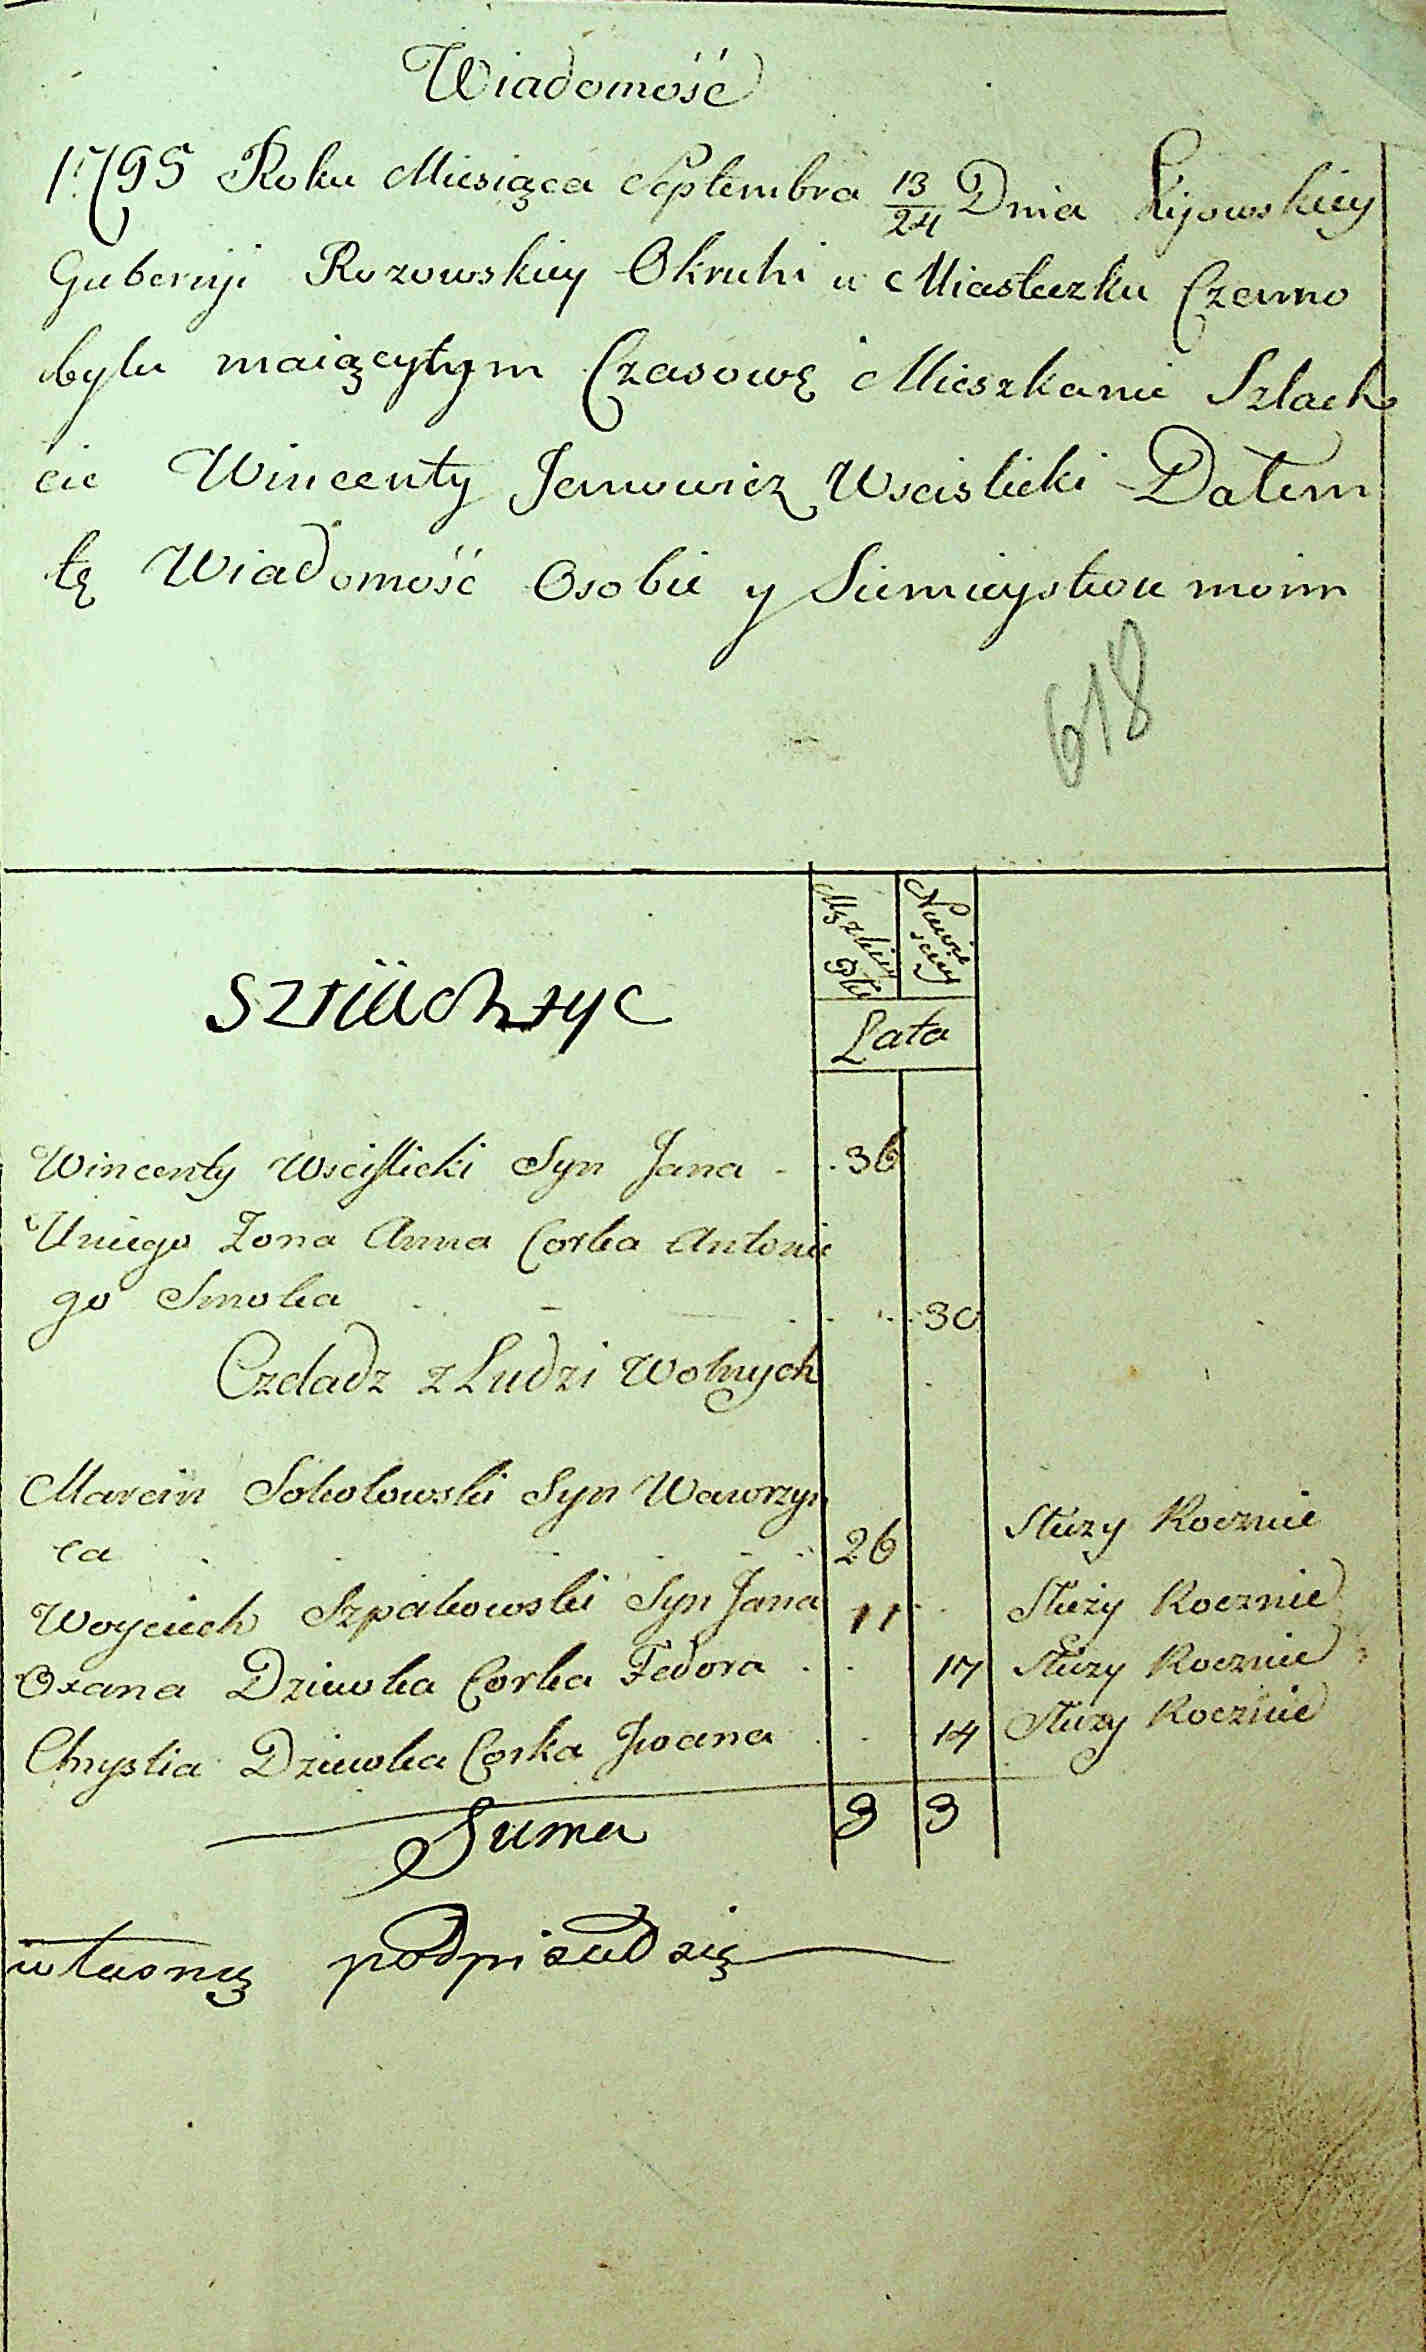 Wiadomość
1795 Roku Miesiąca Septembra 13/24 Dnia Kijowskiey
Gubernji Rozowskiey Okruhi w Miasteczku Czerno
bylu maiącytym Czasowę Mieszkanie Szlach
cic Wincenty Janowicz Wscislicki Datem
tę Wiadomość Osobie y Siemieystwu moim
618
Męzkiey Płci
Niewie sciey
Lata
Szlachzyc
Wincenty Wscislicki Syn Jana 36
Uniego Zona Anna Corka Antonie
go Smoka 30
Czeladz z Ludzi Wolnych
Marcin Sokolowski Syn Wawrzyn
ca 26 Służy Rocznie
Woyciech Szpakowski Syn Jana 11 Służy Rocznie
Oxana Dziewka Corka Fedora 17 Służy Rocznie
Chrystia Dziewka Corka Jwana 14 Służy Rocznie
Suma 3 3
własnę podpisał się